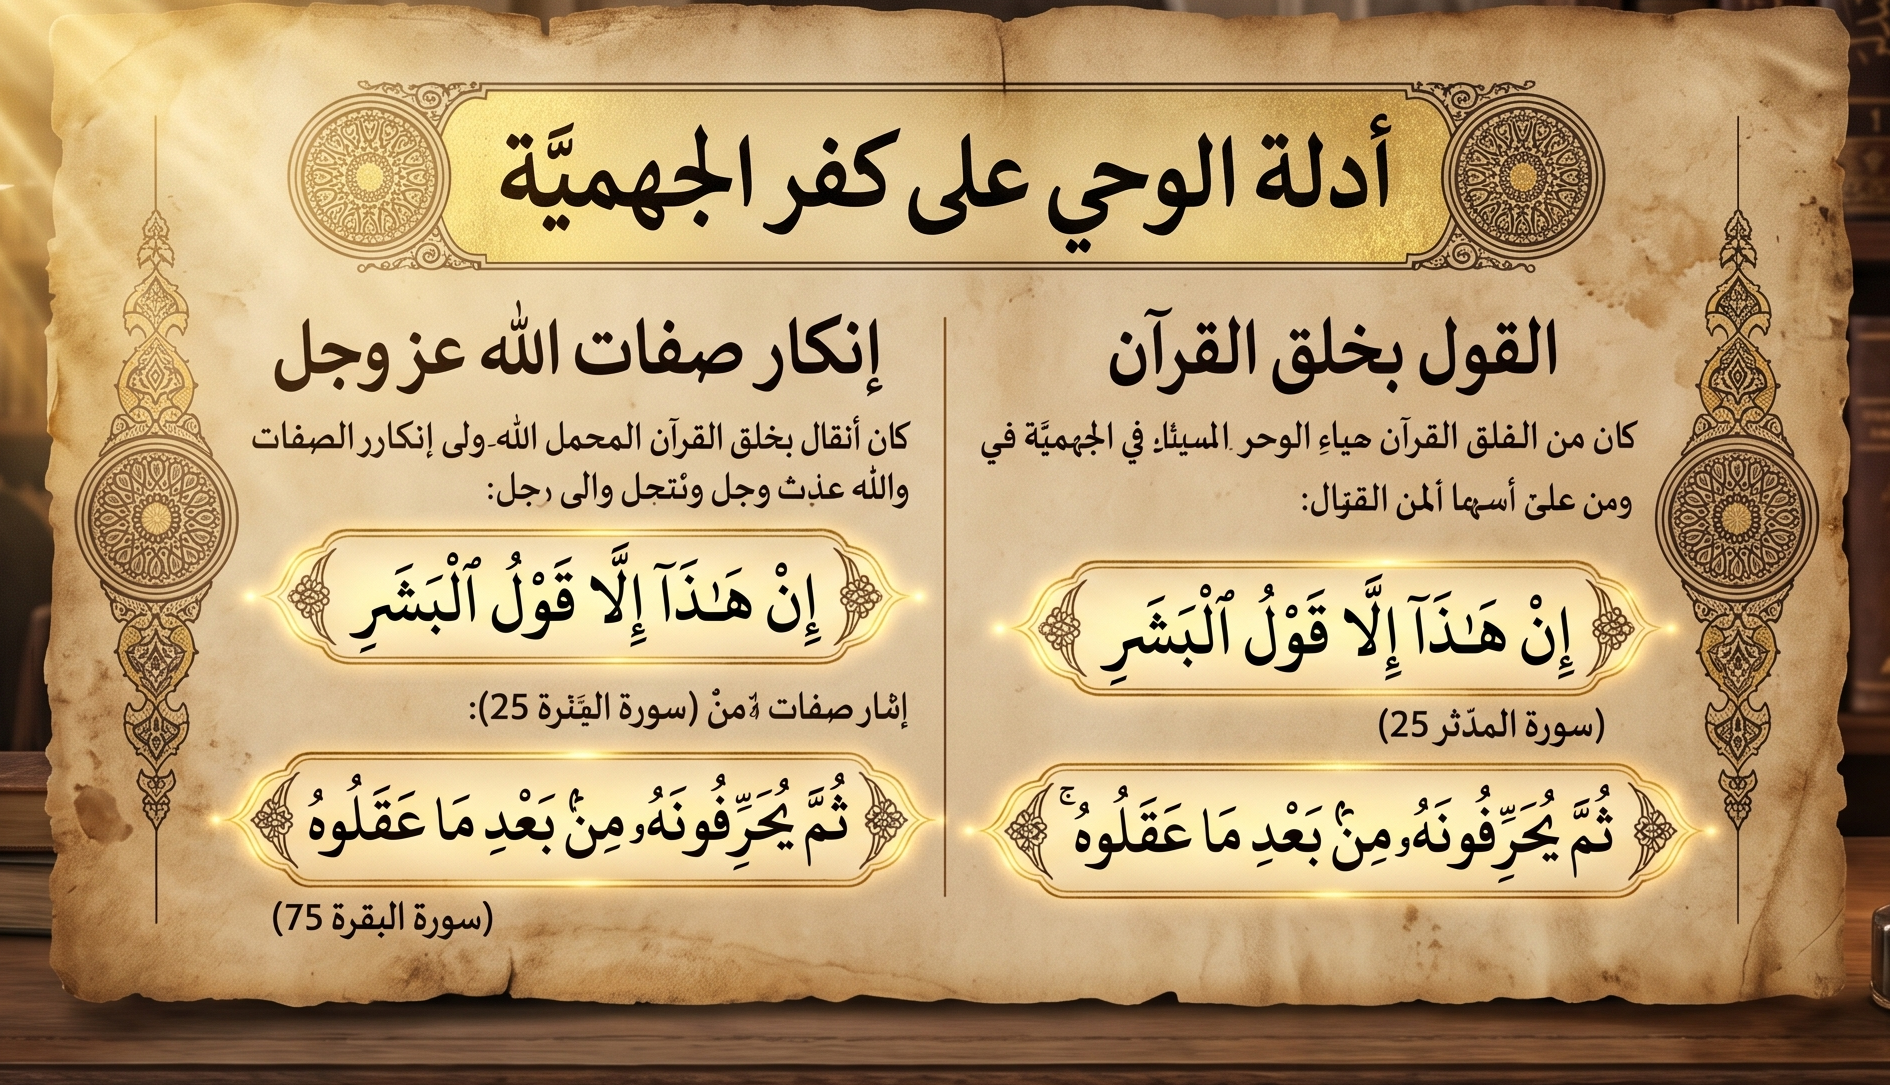 أدلة الوحي على كفر الجهميَّة
القول بخلق القرآن
كان من الفلق القرآن هياءِ الوحر المسيئاءِ في الجهميَّة في
ومن علىّ أسهما ألمن القتال:
إِنْ هَـٰذَآ إِلَّا قَوْلُ ٱلْبَشَرِ
(سورة المدّثر 25)
ثُمَّ يُحَرِّفُونَهُۥ مِنۢ بَعْدِ مَا عَقَلُوهُ ۚ
إنكار صفات الله عز وجل
كان أنقال بخلق القرآن المحمل الله ولى إنكارر الصفات
والله عذث وجل ونتجل والى رجل:
إِنْ هَـٰذَآ إِلَّا قَوْلُ ٱلْبَشَرِ
صفات (سورة 25):
ثُمَّ يُحَرِّفُونَهُۥ مِنۢ بَعْدِ مَا عَقَلُوهُ
(سورة البقرة 75)